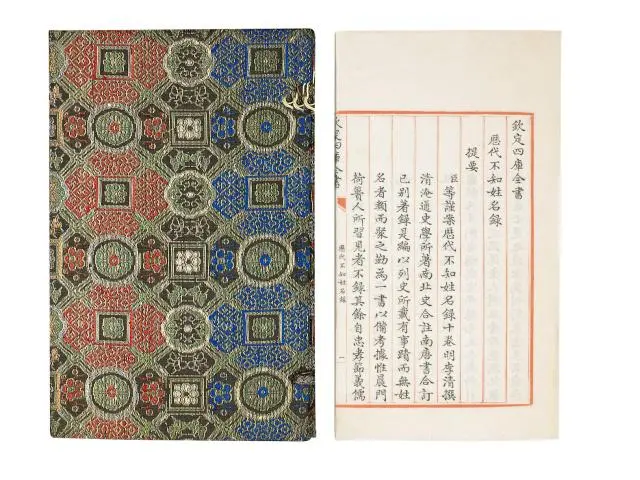 欽定四庫全書
歷代不知姓名錄
提要
臣等謹案歷代不知姓名錄十卷明李清撰
清淹通史學所著南北史合註南唐書合訂
已别著録是編以列史所載有事蹟而無姓
名者類而聚之勒為一書以備考據惟晨門
荷蕢人所習見者不錄其餘自忠孝節義儒
欽定四庫全書
歷代不知姓名錄
一